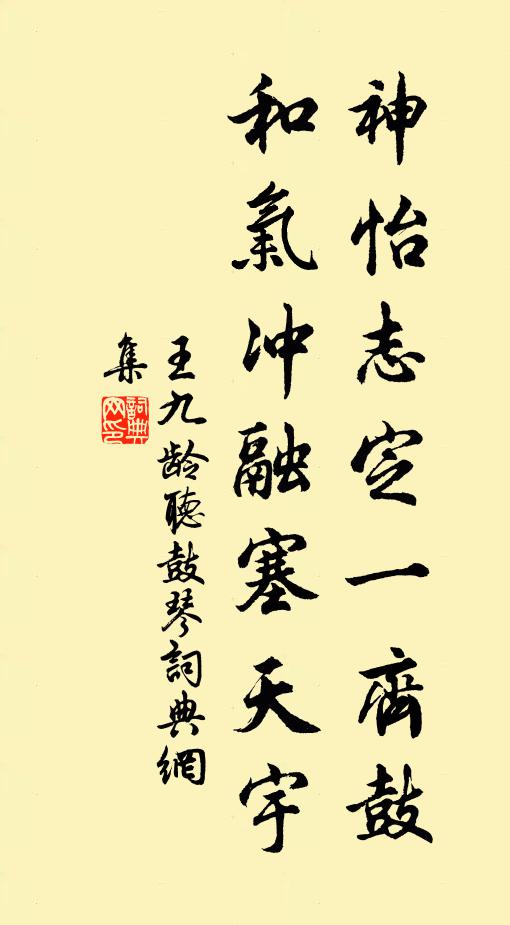 神怡志定一齊鼓
和氣冲融塞天宇
王九龄聽鼓琴詞典網
集
詞典網印